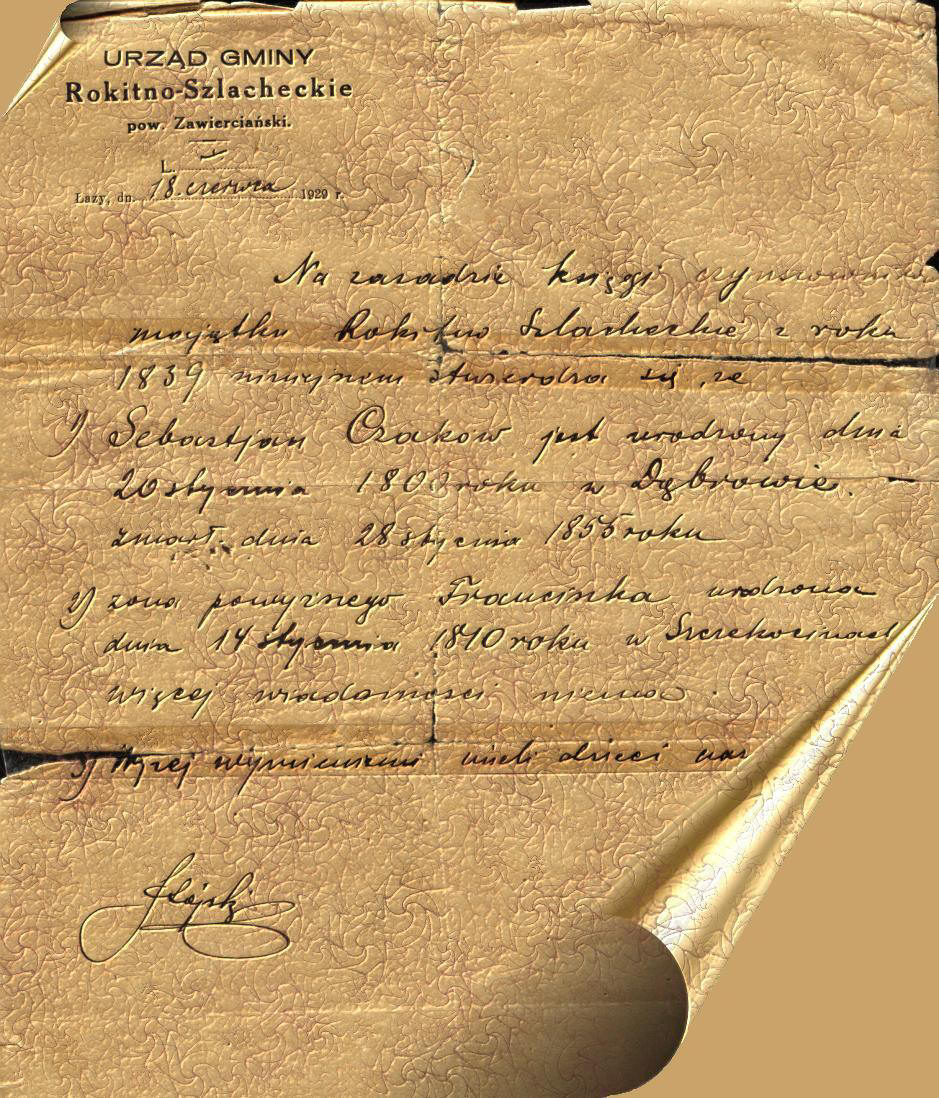 URZĄD GMINY
Rokitno-Szlacheckie
pow. Zawierciański.
L.
Łazy, dn. 18. czerwca 1929 r.
Na zasadzie księgi
majątku Rokitno Szlacheckie z roku
1839 niniejszem stwierdza się, że
1) Sebastjan Czakow jest urodzony dnia
20 stycznia 1800 roku w Dąbrowie.
zmarł. dnia 28 stycznia 1855 roku
2) żona powyższego Franciszka urodzona
dnia 14 stycznia 1810 roku w Szczekocinach
więcej wiadomości niema.
3) Wyżej wymienieni mieli dzieci